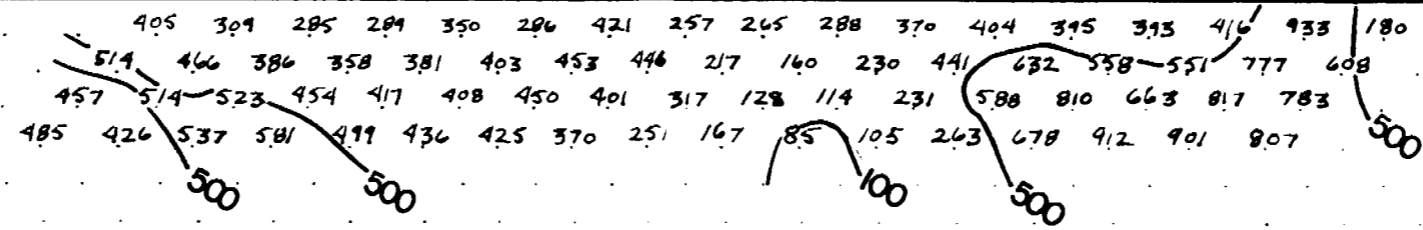 405 309 285 289 350 286 421 257 265 288 370 404 395 393 416 933 180
514 466 386 358 381 403 453 446 217 160 230 441 632 558 551 777 608
457 514 523 454 417 408 450 401 317 128 114 231 588 810 663 817 783
485 426 537 581 499 436 425 370 251 167 85 105 263 678 912 901 807
500 500 100 500 500